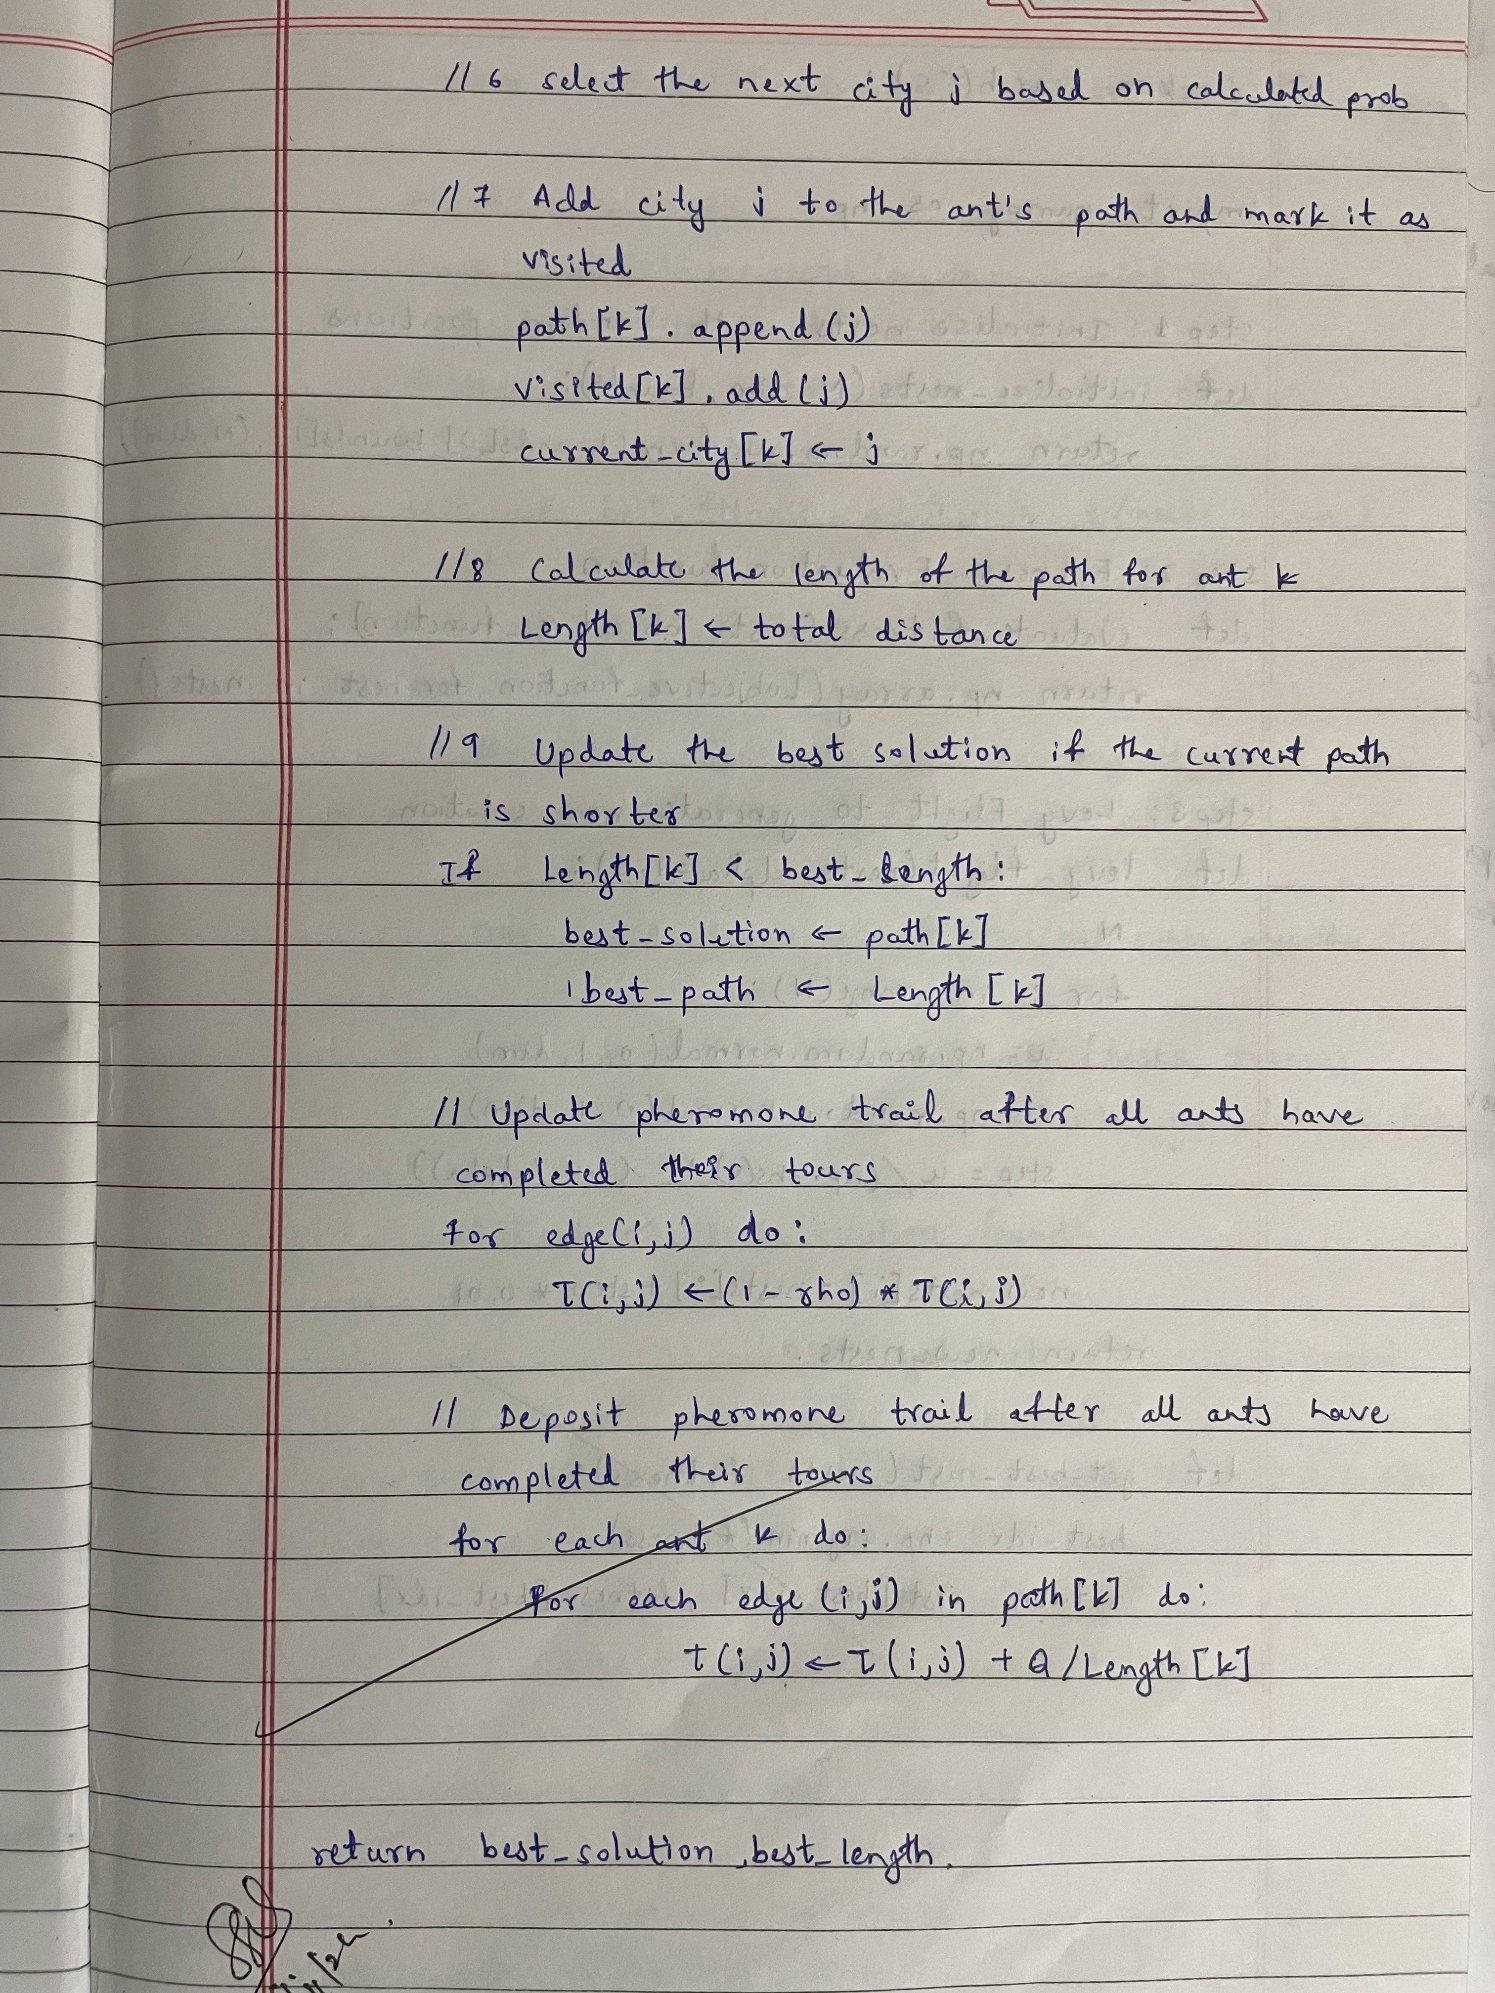 // 6 select the next city j based on calculated prob
// 7 Add city j to the ant's path and mark it as
visited
path[k].append(j)
visited[k].add(j)
current_city[k] ← j
// 8 Calculate the length of the path for ant k
Length[k] ← total distance
// 9 Update the best solution if the current path
is shorter
If Length[k] < best_length:
best_solution ← path[k]
best_path ← Length[k]
// Update pheromone trail after all ants have
completed their tours
for edge(i,j) do:
T(i,j) ← (1 - rho) * T(i,j)
// Deposit pheromone trail after all ants have
completed their tours
for each ant k do:
For each edge (i,j) in path[k] do:
T(i,j) ← T(i,j) + Q/Length[k]
return best_solution, best_length.